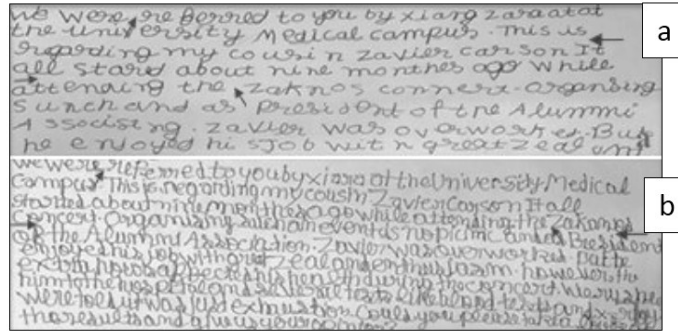 we were referred to you by xiang zaraatat
the University Medical campus. This is
regarding my cousin zavier carson It
all stared about nine monthes ago while
attending the zaknos connert. organsing
sunch and as president of the Alummi
Associsting. zavier was overworkes. But
he enjoyed his job with great zeal and
a
we were referred to you by xiara at the University Medical
Campus This is regarding my cousin Zavier Carson It all
started about nine monthes ago while attending the Zakanos
Concert. Organising such an event is no picnic and as President
of the Alummi Association Zavier was overworkes. But he
enjoyes his job with great Zeal and enthusiasm. however, the
extra hours affected his health during the concert. We rushed
him to the hospital and
tests like blood tests and x-ray
were told it was just exhaustion. Could you please take
the results and
b